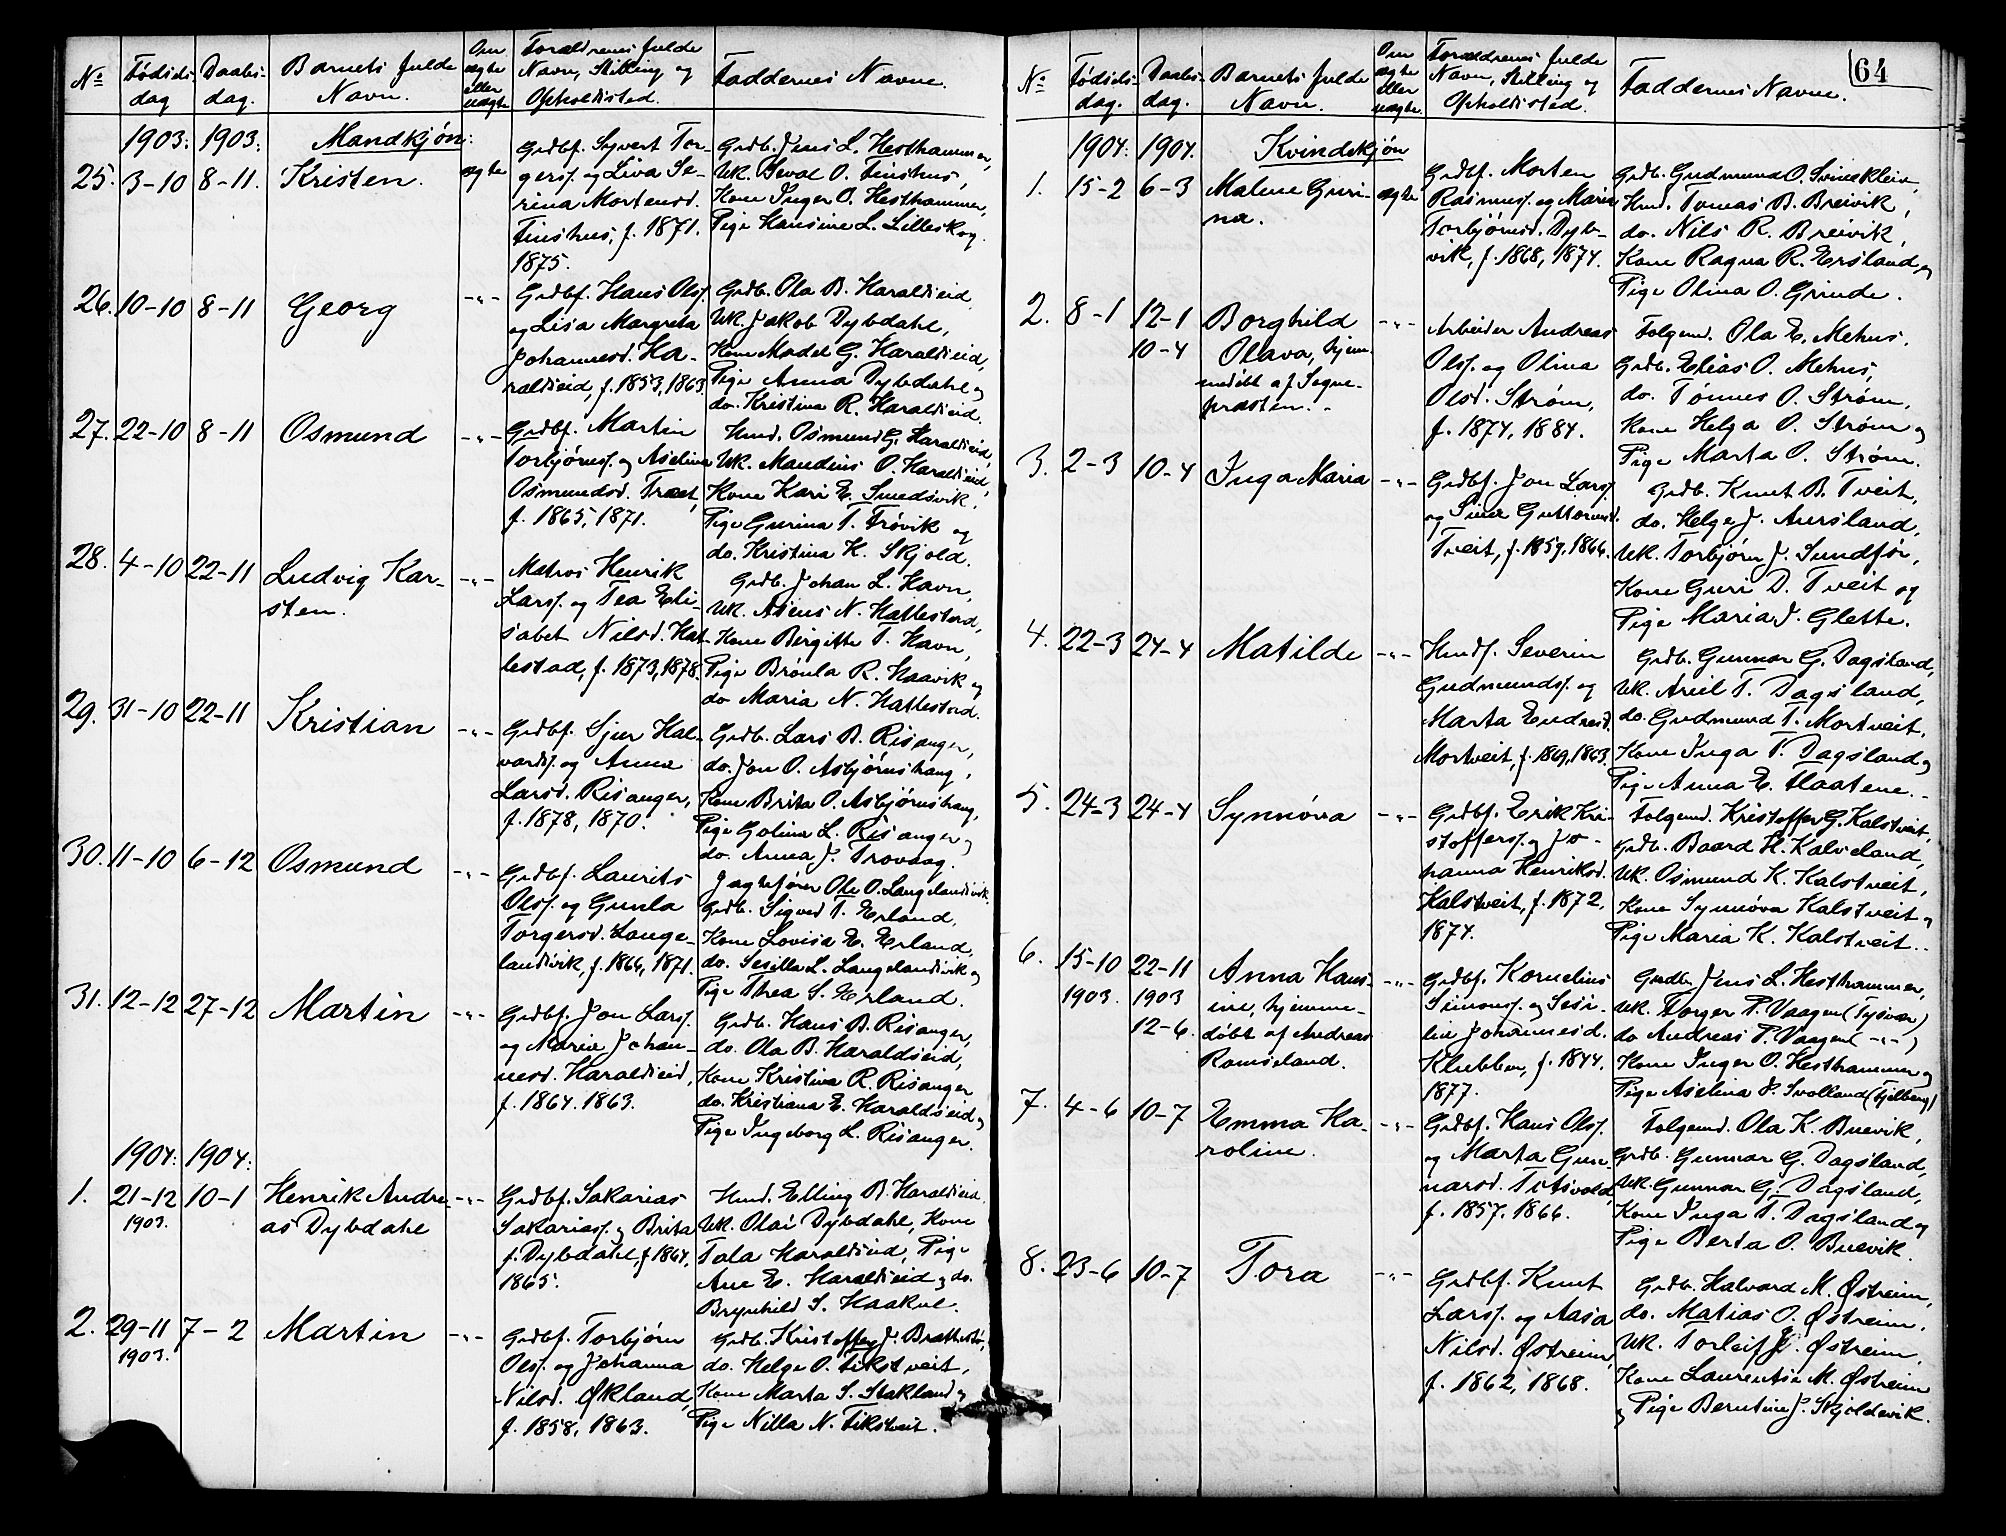 64
No
Fødsels-
dag
Daabs-
dag.
Barnets fulde
Navn.
Om
ægte
eller
uægte
Forældrenes fulde
Navn, Stilling og
Opholdssted.
Faddernes Navne.
1903. 1903. Mandkjøn:
25. 3-10 8-11. Kristen. ægte
Grdbf. Syvert Tor-
gers. og Liva Se-
rina Mortensd.
f. 1871.
1875.
Grdb. Jens L. Hesthammer,
Uk. Sevat O.
Kone Inger O. Hesthammer,
Pige Hansine L. Lilleskog.
26. 10-10 8-11 Georg -"-
Grdbf. Hans Ols.
og Lisa Margreta
Johannesd. Ha-
raldseid, f. 1853, 1863.
Grdb. Ola B. Haraldseid,
Uk. Jakob Dybdahl,
Kone Madel G. Haraldseid,
Pige Anna Dybdahl og
do. Kristina R. Haraldseid.
27. 22-10 8-11 Osmund -"-
Grdbf. Martin
Torbjørns. og Aselina
Osmundsd. Træet,
f. 1865, 1871.
Hmd. Osmund G. Haraldseid,
Uk. Mandius O. Haraldseid,
Kone Kari E. Smedsvik,
Pige Gurina T. Frøvik og
do. Kristina K. Skjold.
28. 4-10 22-11 Ludvig Kar-
sten. -"-
Matros Henrik
Lars. og Tea Eli-
sabet Nilsd. Hat-
lestad, f. 1873, 1878.
Grdb. Johan L. Havn,
Uk. Asens N. Hatlestad,
Kone Bergitte T. Havn,
Pige Brønla R. Haavik og
do Maria N. Hatlestad.
29. 31-10 22-11 Kristian -"-
Grdbf. Sjur Hal-
vards. og Anna
Larsd. Risanger,
f. 1878, 1870.
Grdb. Lars B. Risanger,
do. Jon O. Asbjørnshaug,
Kone Brita O. Asbjørnshaug,
Pige Golina L. Risanger og
do. Anna J. Trovaag.
30. 11-10 6-12 Osmund -"-
Grdbf. Laurits
Ols. og Gunla
Torgersd. Lange-
landsvik, f. 1866, 1871.
Jagtefører Ole O. Langelandsvik,
Grdb. Sigved T. Erland,
Kone Lovisa E. Erland,
do. Sesilla L. Langelandsvik og
Pige Thea S. Erland.
31. 12-12 27-12 Martin -"-
Grdbf. Jon Lars.
og Maria Johan-
nesd. Haraldseid,
f. 1864. 1863.
Grdb. Hans B. Risanger,
do. Ola B. Haraldseid,
Kone Kristina R. Risanger
do. Kristiana E. Haraldseid og
Pige Ingeborg L. Risanger.
1904. 1904.
1. 21-12 10-1 Henrik Andre-
1903.
as Dybdahl -"-
Grdbf. Sakarias
Sakarias. og Brita
J. Dybdahl, f. 1864,
1865.
Hmd. Elling B. Haraldseid.
Uk. Olai Dybdahl, Kone
Tala Haraldseid, Pige
Ane E. Haraldseid og do.
Brynhild S. Haakul.
2. 29-11 7-2 Martin -"-
1903.
Grdbf. Torbjørn
Ols. og Johanna
Nilsd. Økland,
f. 1858, 1863.
Grdb. Kristoffer J.
do. Helge O. Fikstveit,
Kone Marta S. Stakland og
Pige Nilla N. Fikstveit.
No
Fødsels-
dag.
Daabs-
dag.
Barnets fulde
Navn.
Om
ægte
eller
uægte.
Forældrenes fulde
Navn, Stilling og
Opholdssted.
Faddernes Navne.
1904. 1904. Kvindekjøn
1. 15-2 6-3 Malene Guri-
na. ægte
Grdbf. Morten
Rasmus. og Maria
Torbjørnsd. Dyb-
vik, f. 1868, 1874.
Grdb. Gudmund O. Svinekleiv,
Hmd. Tomas B. Breivik,
do. Nils R. Breivik,
Kone Ragna R. Ersland og
Pige Olina O. Grinde.
2. 8-1 12-1 Borghild
10-4 Olava, hjem-
medøbt af Sogne-
præsten. -"-
Arbeider Andreas
Ols. og Olina
Olsd. Strøm,
f. 1874, 1884.
Folgemd. Ola E. Mehus.
Grdb. Elias O. Mehus,
do. Tønnes O. Strøm,
Kone Helga O. Strøm og
Pige Marta O. Strøm.
3. 2-3 10-4 Inga Maria -"-
Grdbf. Jon Lars.
og Sina Guttormsd.
Tveit, f. 1859, 1866.
Grdb. Knut B. Tveit,
do. Helge J. Aursland,
Uk. Torbjørn J. Sundfør,
Kone Guri D. Tveit og
Pige Maria J. Glette.
4. 22-3 24-4 Matilde -"-
Hmdf. Severin
Gudmunds. og
Marta Endresd.
Mortveit, f. 1869, 1863.
Grdb. Gunnar G. Dagsland,
Uk. Ariel T. Dagsland,
do. Gudmund T. Mortveit,
Kone Inga T. Dagsland og
Pige Anna E. Flaatene.
5. 24-3 24-4 Synnøva -"-
Grdbf. Erik Kri-
stoffers. og Jo-
hanna Henriksd.
Kalstveit, f. 1872,
1874.
Folgemd. Kristoffer G. Kalstveit,
Grdb. Baard H. Kalveland,
Uk. Osmund K. Kalstveit,
Kone Synnøva Kalstveit og
Pige Maria K. Kalstveit.
6. 15-10 22-11 Anna Hans-
1903. 1903 ine, hjemme-
12-6. døbt af Andreas
Ramseland. -"-
Grdbf. Kornelius
Simons. og Sesi-
lie Johannesd.
Klubben, f. 1844,
1877.
Grdb. Jens L. Hesthammer,
Uk. Torger P. Vaagen (Tysvær)
do Andreas P. Vaagen (-"-)
Kone Inger O. Hesthammer og
Pige Aselina P. Svolland (Fjelberg)
7. 4-6 10-7 Emma Ka-
roline. -"-
Grdbf. Hans Ols.
og Marta Gun-
narsd.
f. 1857. 1866.
Folgemd. Ola K. Buevik,
Grdb. Gunnar G. Dagsland,
Uk. Gunnar G. Dagsland,
Kone Inga T. Dagsland og
Pige Berta O. Buevik.
8. 23-6 10-7 Tora -"-
Grdbf. Knut
Lars. og Aasa
Nilsd. Østreim,
f. 1862, 1868.
Grdb. Halvard M. Østreim,
do. Matias O. Østreim,
Uk. Torleif J. Østreim,
Kone Laurentse M. Østreim
og Pige Berntine J. Skjoldevik.